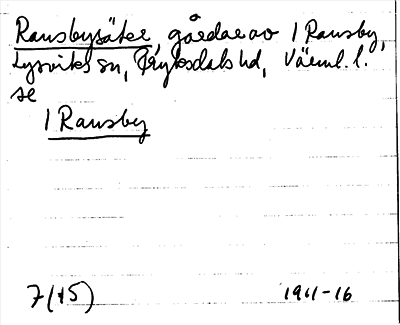 Ransbysäter, gårdar av 1 Ransby,
Lysviks sn, Fryksdals hd, Värml. l.
se
1 Ransby
7(+5) 1911-16